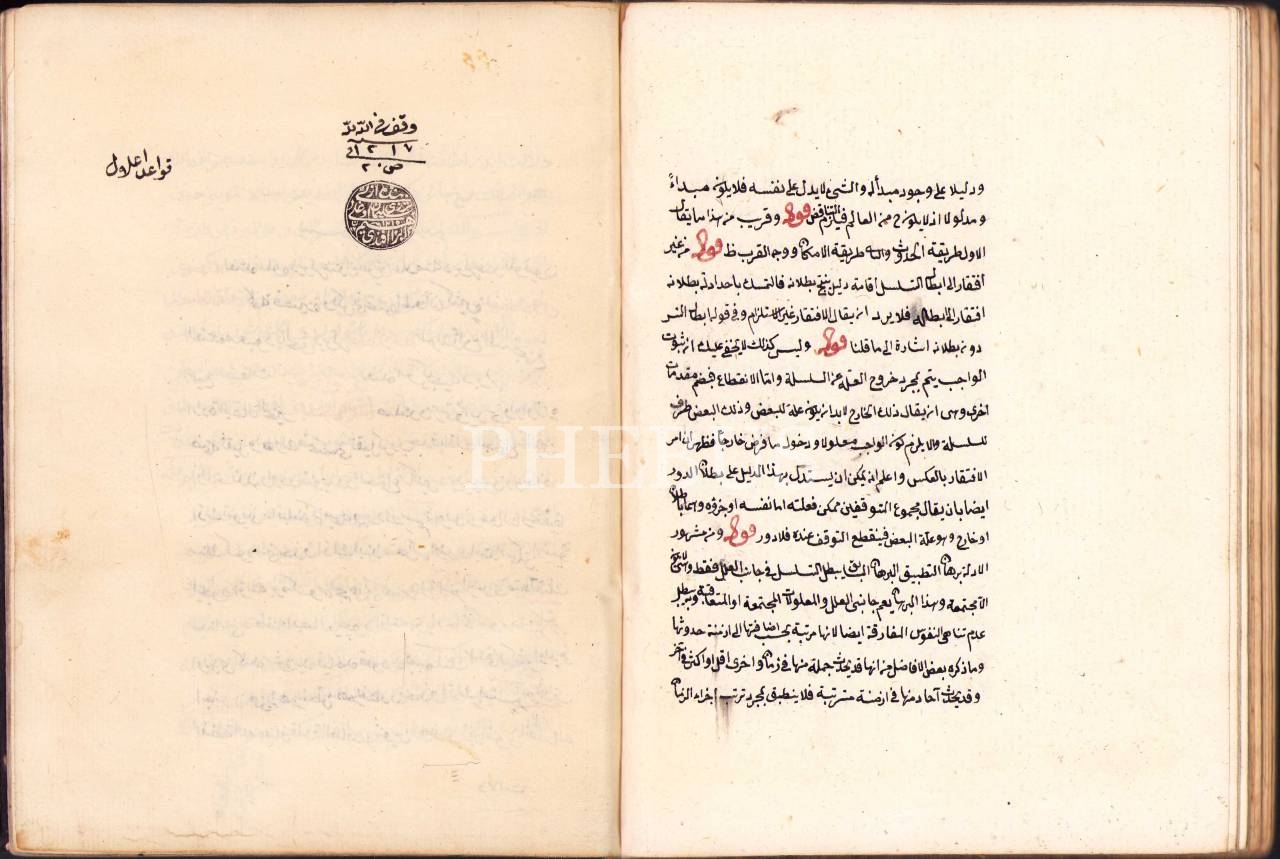 ودليلا على وجود مبدأ له والشئ لا يدل على نفسه فلا يكون مبداءً
ومدلولا اذ لا يكون ح من العالم فيلزم التناقض قوله وقريب من هذا ما يقال
الاول طريقة الحدوث والثـ طريقة الامكان ووجه القرب ظ قوله من غير
افتقار الى ابطال التسلسل اقامة دليل ينتج بطلانه فالتمسك باحد ادلة بطلانه
افتقار الى ابطاله فلا يرد ان يقال الافتقار غير الاستلزام وفي قوله ابطال التسـ
دون بطلانه اشارة الى ما قلنا قوله وليس كذلك لا يخفى عليك ان ثبوت
الواجب يتم بمجرد خروج العلة عن السلسلة واما الانقطاع فبضم مقدمات
اخرى وهى ان يقال ذلك الخارج لا بد ان يكون علة للبعض وذلك البعض طرف
للسلسلة والا يلزم كون الواجب معلولا ودخول ما فرض خارجا فظهر ان امر
الافتقار بالعكس واعلم انه يمكن ان يستدل بهذا الدليل على بطلان الدور
ايضا بان يقال مجموع المتوقفين ممكن فعلته اما نفسه او جزؤه وهما باطلان
او خارج وهو علة البعض فينقطع التوقف عنده فلا دور قوله ومن مشهور
الادلة برهان التطبيق البرهان السابق يبطل التسلسل في جانب العلل فقط
المجتمعة وهذا البرهان يعم جانبى العلل والمعلولات المجتمعة او المتعاقبة وبه يبطل
عدم تناهى النفوس المفارقة ايضا لانها مرتبة بحسب اضافتها الى ازمنة حدوثها
وما ذكره بعض الافاضل من انها قد يحدث جملة منها في زمان واخرى اقل او اكثر في آخر
وقد يحدث آحاد منها في ازمنة مترتبة فلا ينطبق بمجرد ترتب اجزاء الزمان
وقف في الله
١٢١٧
ص ٢٠
PHEBUS